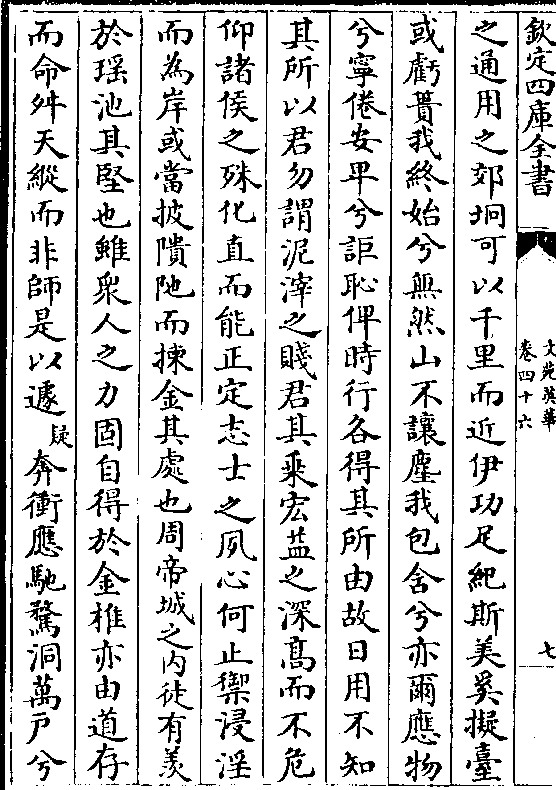 欽定四庫全書
文苑英華
卷四十六
七
之通用之郊坰可以千里而近伊功足紀斯美奚擬臺
或虧蕢我終始兮無然山不讓塵我包含兮亦爾應物
兮寧倦安卑兮詎恥俾時行各得其所由故日用不知
其所以君勿謂泥滓之賤君其乘宏益之深髙而不危
仰諸侯之殊化直而能正定志士之夙心何止禦浸淫
而為岸或當披隤阤而揀金其處也周帝城之内徒有羡
於瑶池其堅也雖衆人之力固自得於金椎亦由道存
而命舛天縱而非師是以遽疑奔衝應馳騖洞萬戸兮